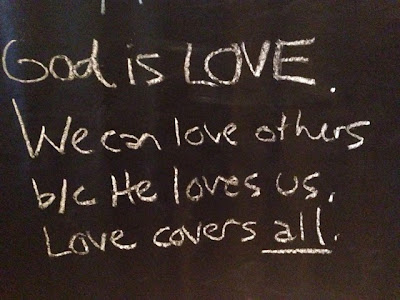 God is LOVE.
We can love others
b/c He loves us.
Love covers all.